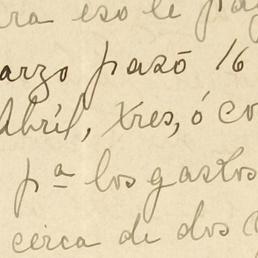 ra eso le pa
arzo pasó 16
Abríl, Xres, ó co
pª los gastos
cerca de dos